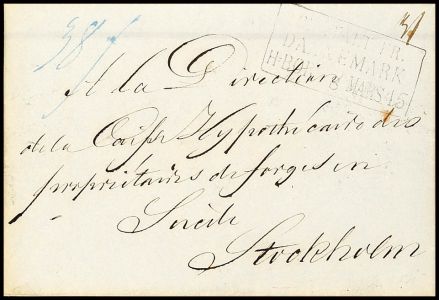 38/
31
TRANSIT FR.
DANEMARK
H-BOR 8 MARS 45
A la Direction
de la Caisse Hypothécaire des
propriétaires de forges en
Suède
Stockholm